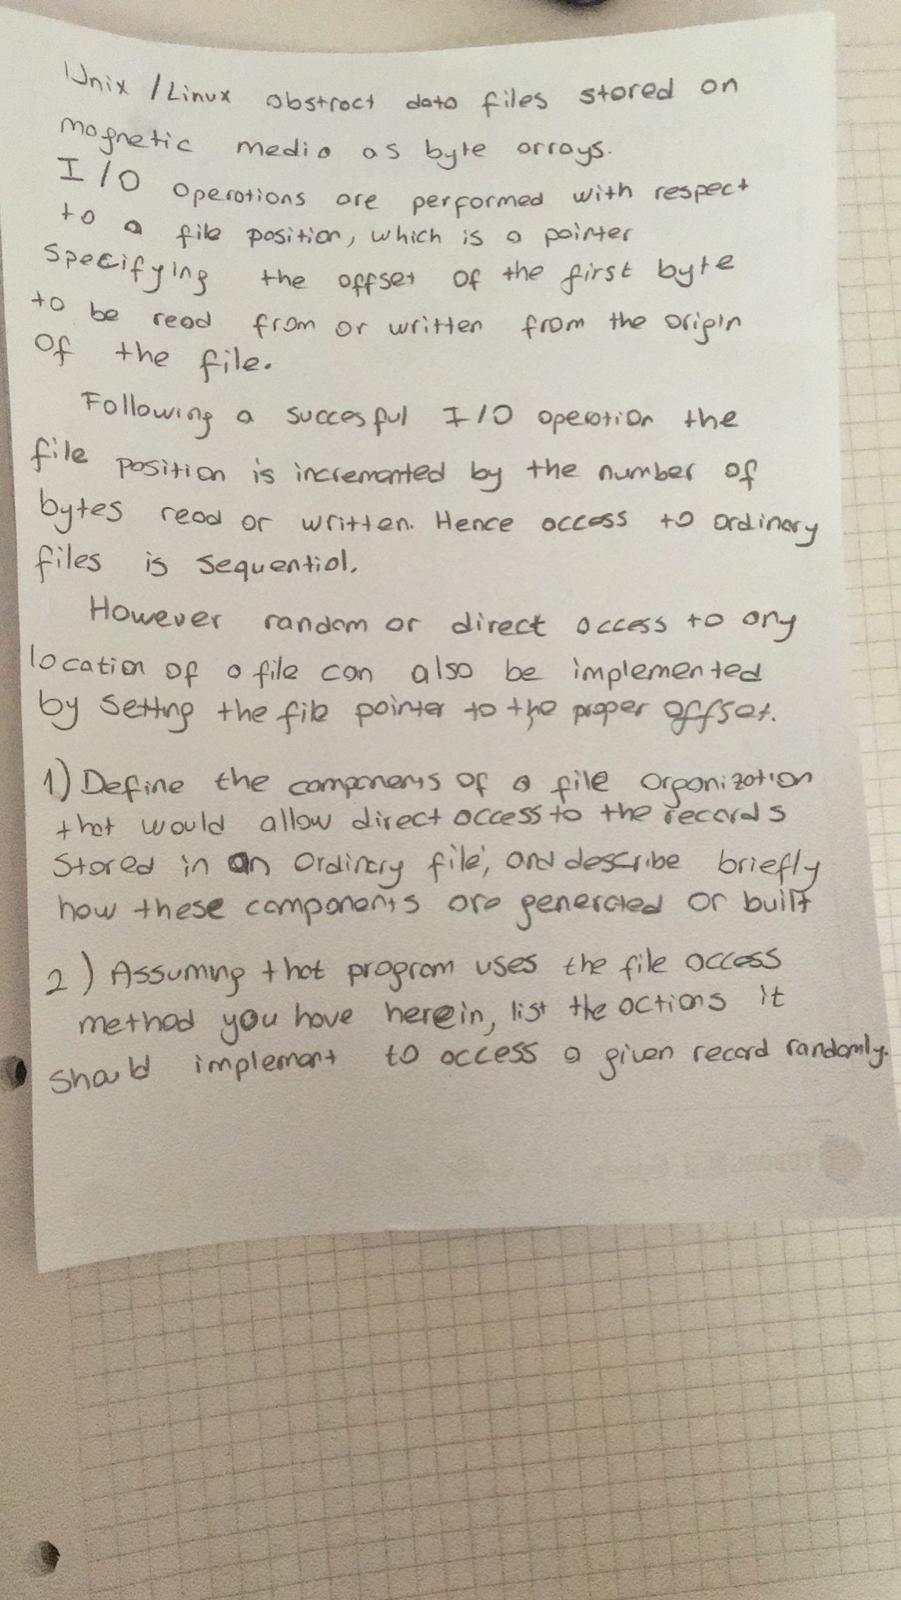 Unix / Linux abstract data files stored on
magnetic media as byte arrays.
I/O operations are performed with respect
to a file position, which is a pointer
specifying the offset of the first byte
to be read from or written from the origin
of the file.
Following a succesful I/O operation the
file position is incremented by the number of
bytes read or written. Hence access to ordinary
files is sequential.
However random or direct access to any
location of a file can also be implemented
by setting the file pointer to the proper offset.
1) Define the components of a file organization
that would allow direct access to the records
stored in an ordinary file, and describe briefly
how these components are generated or built
2) Assuming that program uses the file access
method you have herein, list the actions it
should implement to access a given record randomly.